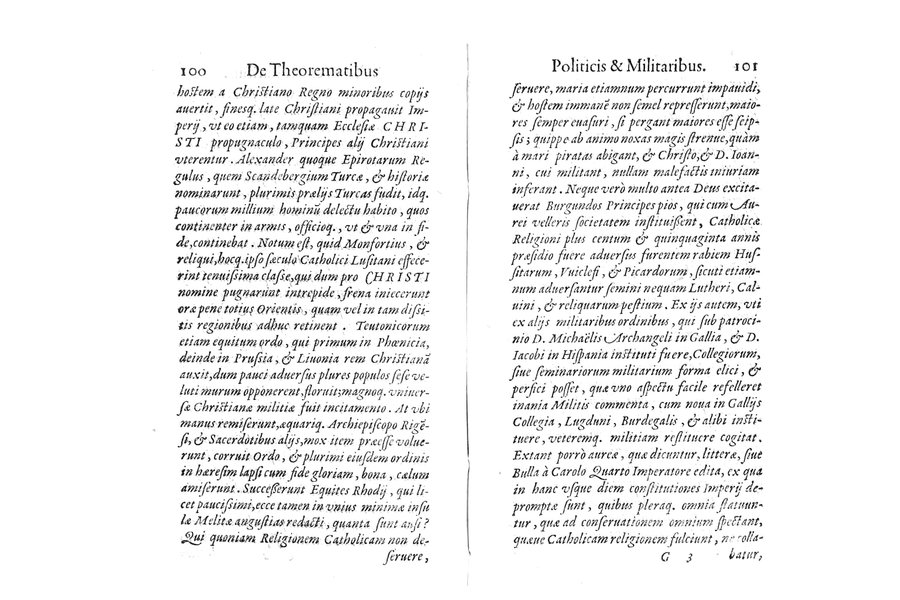 100 De Theorematibus
hostem a Christiano Regno minoribus copijs
auertit, finesq. late Christiani propagauit Im-
perij, vt eo etiam, tamquam Ecclesiæ CHRI-
STI propugnaculo, Principes alij Christiani
vterentur. Alexander quoque Epirotarum Re-
gulus, quem Scandebergium Turcæ, & historiæ
nominarunt, plurimis prælijs Turcas fudit, idq.
paucorum millium hominū delectu habito, quos
continenter in armis, officioq., vt & vna in fi-
de, continebat. Notum est, quid Monfortius, &
reliqui, hocq. ipso sæculo Catholici Lusitani effece-
rint tenuissima classe, qui dum pro CHRISTI
nomine pugnarunt intrepide, frena iniecerunt
oræ pene totius Orientis, quam vel in tam dissi-
tis regionibus adhuc retinent. Teutonicorum
etiam equitum ordo, qui primum in Phœnicia,
deinde in Prussia, & Liuonia rem Christianā
auxit, dum pauci aduersus plures populos sese ve-
luti murum opponerent, floruit; magnoq. vniuer-
sæ Christianæ militiæ fuit incitamento. At vbi
manus remiserunt, æquariq. Archiepiscopo Rigē-
si, & Sacerdotibus alijs, mox item præesse volue-
runt, corruit Ordo, & plurimi eiusdem ordinis
in hæresim lapsi cum fide gloriam, bona, cælum
amiserunt. Successerunt Equites Rhodij, qui li-
cet paucissimi, ecce tamen in vnius minimæ insu
læ Melitæ angustias redacti, quanta sunt ausi?
Qui quoniam Religionem Catholicam non de-
seruere,
Politicis & Militaribus. 101
seruere, maria etiamnum percurrunt impauidi,
& hostem immanē non semel represserunt, maio-
res semper euasuri, si pergant maiores esse seip-
sis; quippe ab animo noxas magis strenue, quàm
à mari piratas abigant, & Christo, & D. Ioan-
ni, cui militant, nullam malefactis iniuriam
inferant. Neque verò multo antea Deus excita-
uerat Burgundos Principes pios, qui cum Au-
rei velleris societatem instituissent, Catholicæ
Religioni plus centum & quinquaginta annis
præsidio fuere aduersus furentem rabiem Hus-
sitarum, Vuiclefi, & Picardorum, sicuti etiam-
num aduersantur semini nequam Lutheri, Cal-
uini, & reliquarum pestium. Ex ijs autem, vti
ex alijs militaribus ordinibus, qui sub patroci-
nio D. Michaëlis Archangeli in Gallia, & D.
Iacobi in Hispania instituti fuere, Collegiorum,
siue seminariorum militarium forma elici, &
perfici posset, quæ vno aspectu facile refelleret
inania Militis commenta, cum noua in Gallijs
Collegia, Lugduni, Burdegalis, & alibi insti-
tuere, veteremq. militiam restituere cogitat.
Extant porrò aureæ, quæ dicuntur, litteræ, siue
Bulla à Carolo Quarto Imperatore edita, ex qua
in hanc vsque diem constitutiones Imperij de-
promptæ sunt, quibus pleraq. omnia statuun-
tur, quæ ad conseruationem omnium spectant,
quæue Catholicam religionem fulciunt, ne colla-
G 3 batur,